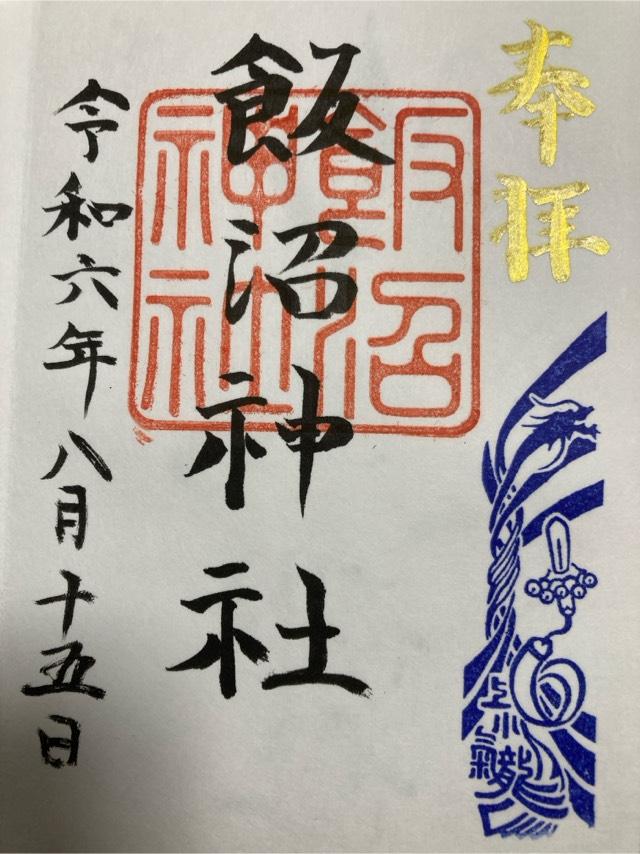 奉拝
飯沼神社
飯沼
神社
令和六年八月十五日